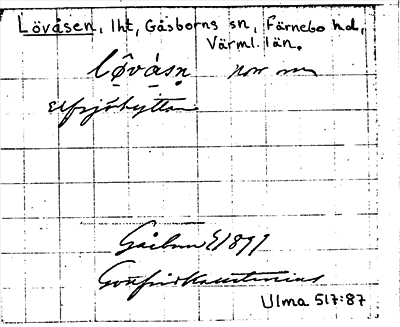 Lövåsen, lht, Gåsborns sn, Färnebo hd,
Värml. län.
lövåsn norr om
Elfsjöhyttan
Gåsborn 1899
Gottfrid Kallstenius
Ulma 517:87